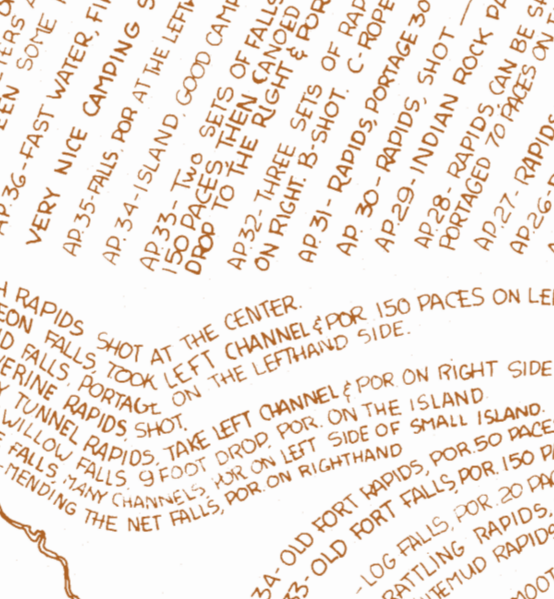 TERS
EEN SOME
AP. 36-FAST WATER, FI
VERY NICE CAMPING S
AP. 35-FALLS, POR AT THE LEFT
AP. 34-ISLAND, GOOD CAMP
AP. 33- Two SETS OF FALLS
150 PACES THEN CANOED
DROP TO THE RIGHT & POR
AP. 32- THREE SETS OF RAP
ON RIGHT. B-SHOT. C-ROPE
AP. 31- RAPIDS, PORTAGE 30
AP. 30- RAPIDS, SHOT —
AP. 29- INDIAN ROCK PA
AP. 28- RAPIDS, CAN BE SH
PORTAGED 70 PACES ON
AP. 27- RAPID
AP. 26-
H RAPIDS SHOT AT THE CENTER.
EON FALLS, TOOK LEFT CHANNEL & POR 150 PACES ON LE
D FALLS, PORTAGE ON THE LEFTHAND SIDE.
VERINE RAPIDS, SHOT.
Y TUNNEL RAPIDS, TAKE LEFT CHANNEL & POR ON RIGHT SIDE
WILLOW FALLS, 9 FOOT DROP, POR. ON THE ISLAND.
E FALLS, MANY CHANNELS, POR ON LEFT SIDE OF SMALL ISLAND.
-MENDING THE NET FALLS, POR. ON RIGHTHAND
3A- OLD FORT RAPIDS, POR. 50 PACE
33- OLD FORT FALLS, POR. 150 P
- LOG FALLS, POR. 20 PA
RATTLING RAPIDS,
TEMUD RAPIDS
MOOT